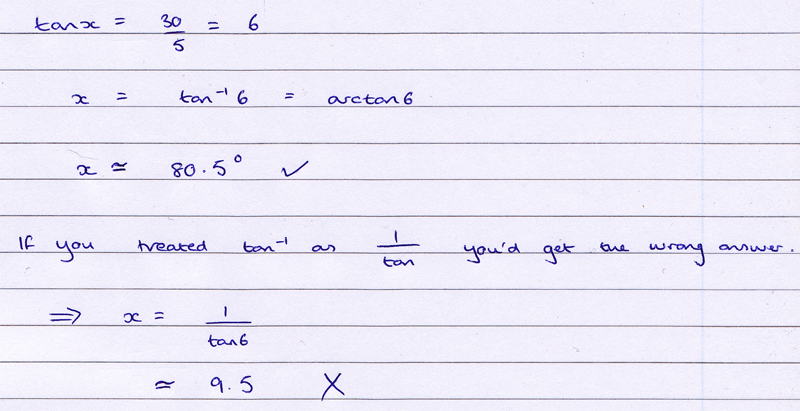 tanx = 30/5 = 6
x = tan⁻¹6 = arctan6
x ≃ 80.5° ✓
If you treated tan⁻¹ as 1/tan you'd get the wrong answer.
⇒ x = 1/tan6
≃ 9.5 X